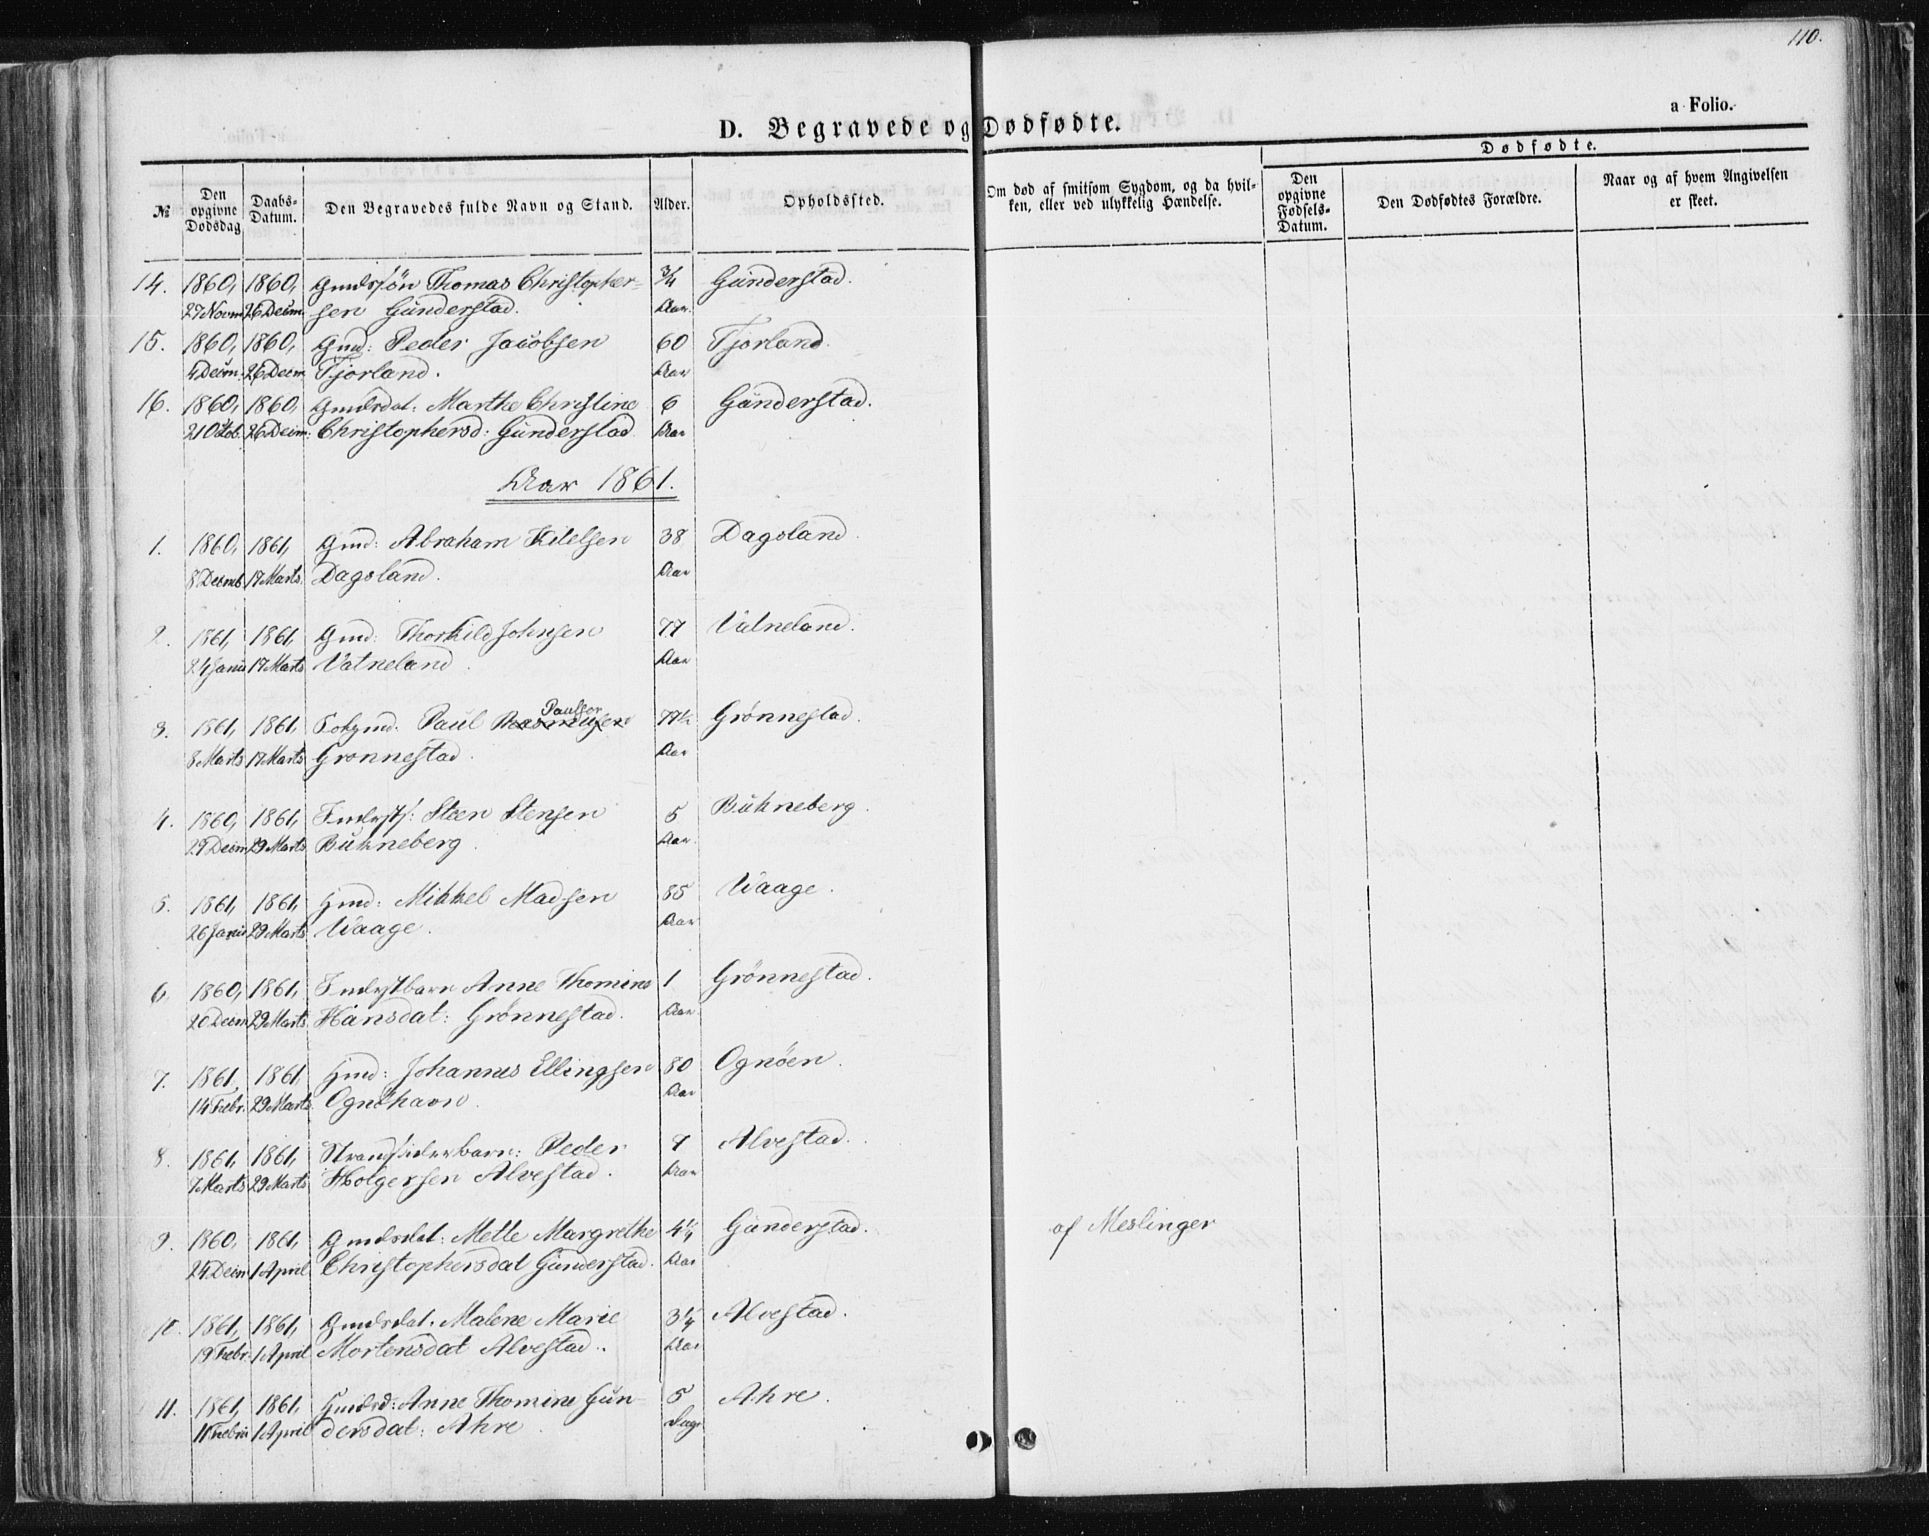 110.
a Folio.
D. Begravede og Dødfødte.
Dødfødte.
№ Den opgivne Dødsdag Daabs-Datum. Den Begravedes fulde Navn og Stand. Alder. Opholdssted. Om død af smitsom Sygdom, og da hvilken, eller ved ulykkelig Hændelse. Den opgivne Fødsels-Datum. Den Dødfødtes Forældre. Naar og af hvem Angivelsen er skeet.
14. 1860, 1860, Gmdssøn Thomas Christopher- 3/4 Gunderstad.
27 Novm 26 Decim. sen Gunderstad. Aar.
15. 1860, 1860, Gmd: Peder Jacobsen 60 Tjorland.
4 Decim. 26 Decm Tjorland. Aar
16. 1860, 1860, Gmdsdat: Marthe Christine 6 Gunderstad.
21 Octob. 26 Decim: Christophersd: Gunderstad Aar
Aar 1861.
1. 1860, 1861, Gmd: Abraham Kitelsen 38 Dagsland.
8 Decmb. 17 Marts. Dagsland. Aar
2. 1861, 1861, Gmd: Thorkild Johnsen 77 Vatneland.
24 Janu 17 Marts Vatneland. Aar
Paulsen
3. 1861, 1861, Fohgmd. Paul Rasmusen 77½ Grönnestad.
8 Marts 17 Marts Grønnestad. Aar
4. 1860, 1861, Steen Stensen 5 Bukneberg.
29 Decm 29 Marts Bukneberg. Aar
5. 1861, 1861, Hmd: Mikkel Madsen 85 Waage.
26 Janu 29 Marts Waage. Aar
6. 1860, 1861, Indrstbarn Anne Thomine 1 Grönnestad.
20 Decm 29 Marts. Hansdat: Grönnestad. Aar.
7. 1861, 1861, Hmd: Johannes Ellingsen 80 Ognöen.
14 Febr. 29 Marts. Ognöhavn. Aar
8. 1861, 1861, Strandsiderbarn: Peder 7 Alvestad.
7 Marts 29 Marts Holgersen Alvestad. Aar
9. 1860, 1861, Gmdsdat: Mette Margrethe 4¼ Gunderstad. af Meslinger
24 Decm 1 April Christophersdat Gunderstad. Aar
10. 1861, 1861, Gmdsdat. Malene Marie 3¼ Alvestad.
19 Febr. 1 April Mortensdat Alvestad. Aar
11. 1861, 1861, Hmdsd: Anne Thomine Gun- 5 Ahre.
11 Febru 1 April dersdat: Ahre. Dage